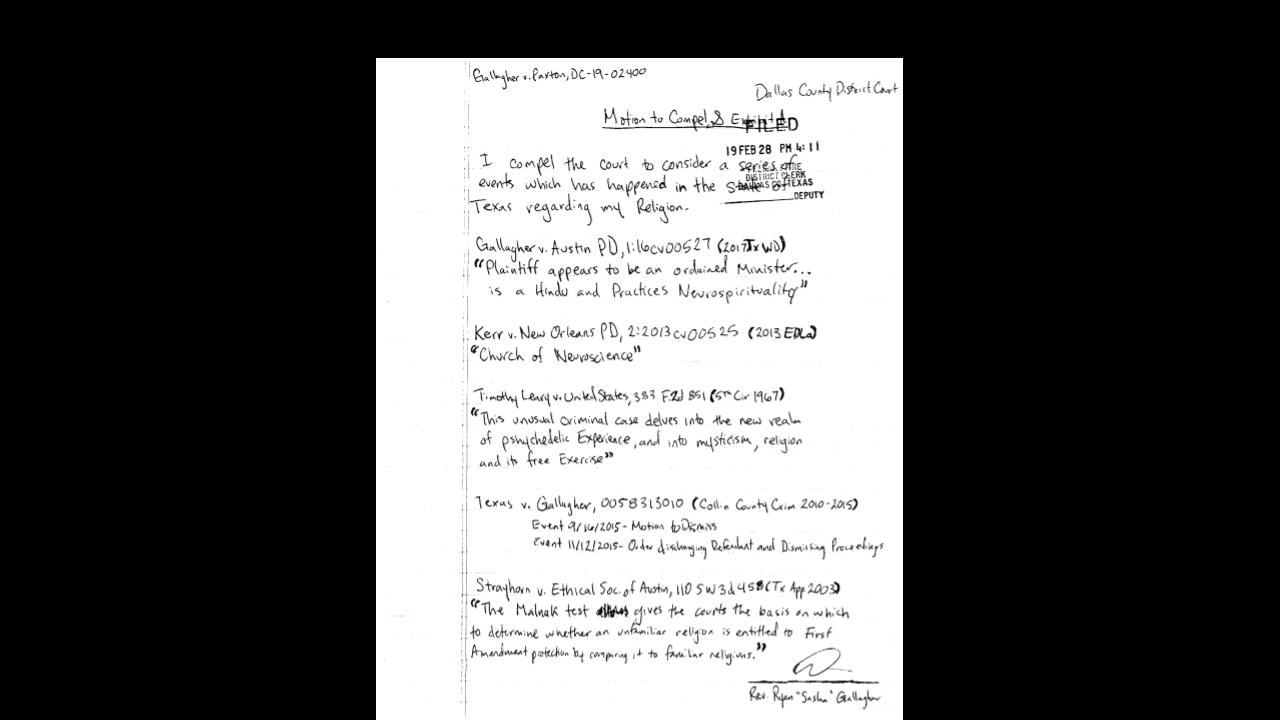 Gallagher v. Paxton, DC-19-02400
Dallas County District Court
Motion to Compel, & Exhibit A
FILED
19 FEB 28 PM 4:11
I compel the court to consider a series of
DISTRICT CLERK
events which has happened in the State of
DALLAS CO TEXAS
DEPUTY
Texas regarding my Religion.
Gallagher v. Austin PD, 1:16cv00527 (2017 Tx WD)
"Plaintiff appears to be an ordained Minister...
is a Hindu and Practices Neurospirituality"
Kerr v. New Orleans PD, 2:2013cv00525 (2013 EDLa)
"Church of Neuroscience"
Timothy Leary v. United States, 383 F.2d 851 (5th Cir 1967)
"This unusual criminal case delves into the new realm
of pshychedelic Experience, and into mysticism, religion
and its free Exercise"
Texas v. Gallagher, 0058313010 (Collin County Crim 2010-2015)
Event 9/16/2015- Motion to Dismiss
Event 11/12/2015- Order discharging Defendant and Dismissing Proceedings
Strayhorn v. Ethical Soc. of Austin, 110 SW3d 458 (Tx App 2003)
"The Malnak test gives the courts the basis on which
to determine whether an unfamiliar religion is entitled to First
Amendment protection by comparing it to familiar religions."
Rev. Ryan "Sasha" Gallagher